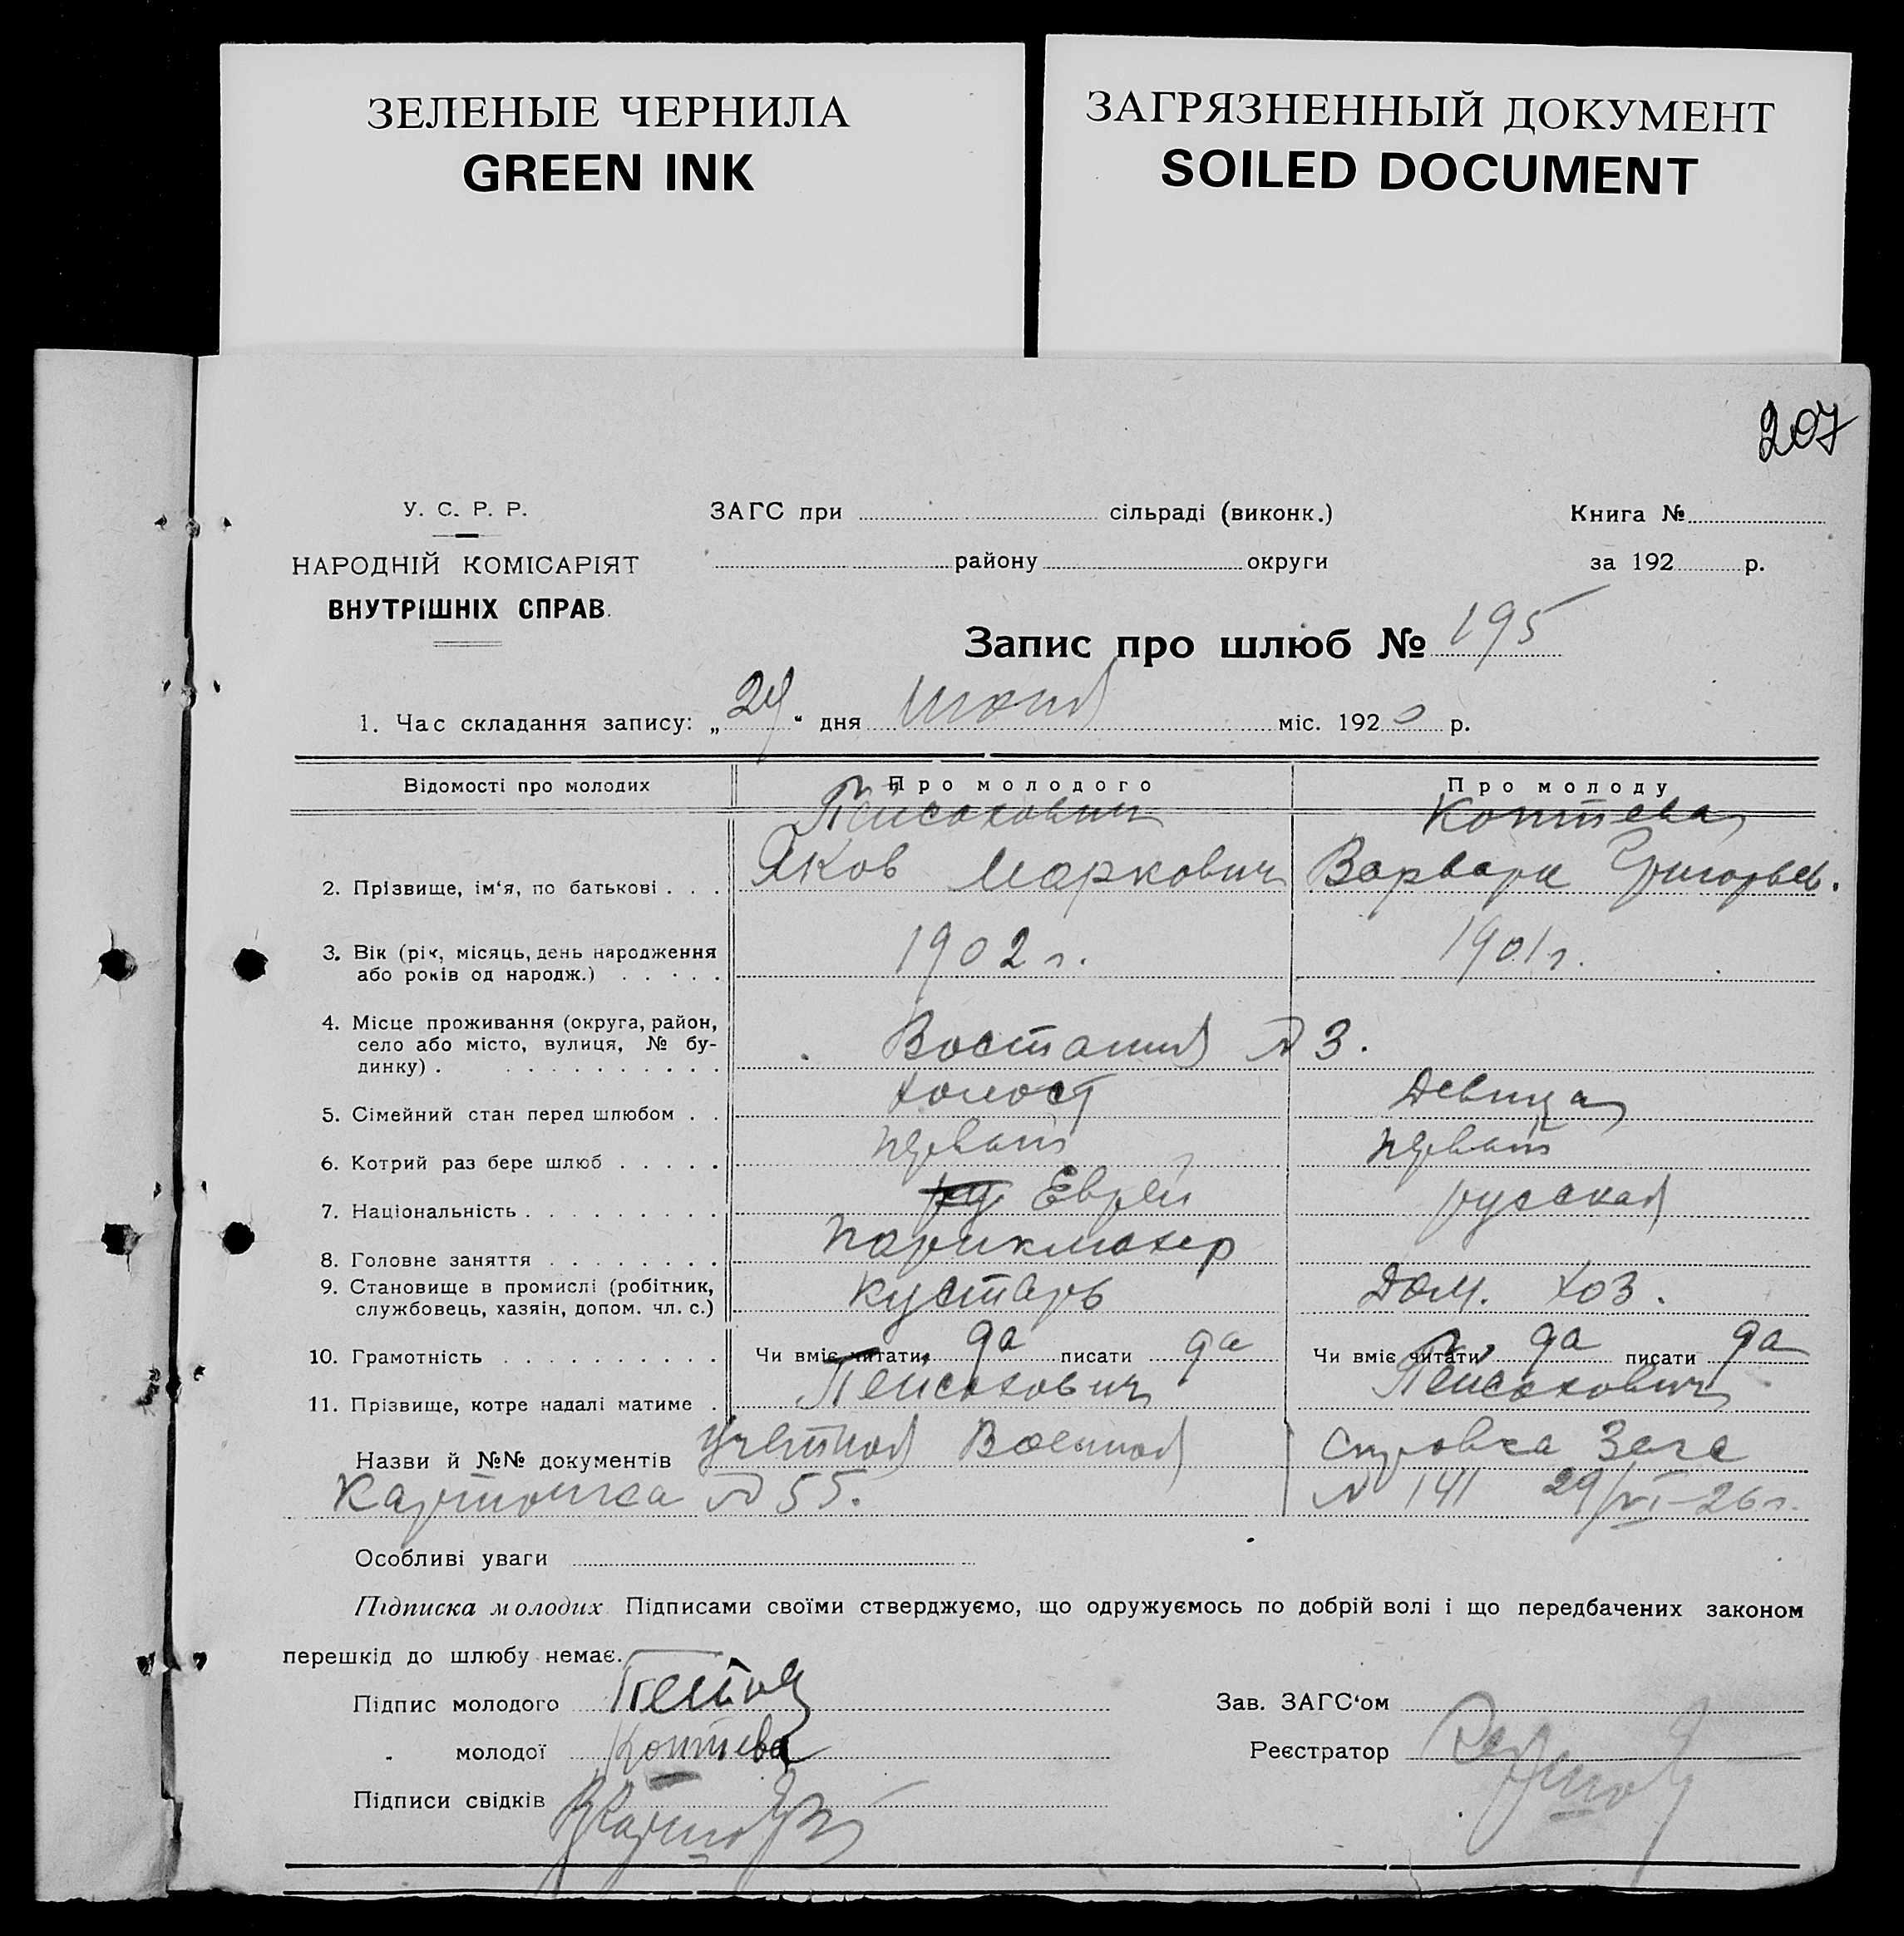 ЗЕЛЕНЫЕ ЧЕРНИЛА
GREEN INK
ЗАГРЯЗНЕННЫЙ ДОКУМЕНТ
SOILED DOCUMENT
207
У. С. Р. Р.
НАРОДНІЙ КОМІСАРІЯТ
ВНУТРІШНІХ СПРАВ.
ЗАГС при сільраді (виконк.)
району округи
Книга №
за 192 р.
Запис про шлюб № 195
1. Час складання запису: „29“ дня міс. 192 р.
Відомості про молодих Про молодого Про молоду
Пейсахович Коптева
2. Прізвище, ім‘я, по батькові . . . Яков Маркович Варвара Григорьев.
3. Вік (рік, місяць, день народження 1902 г. 1901 г.
або років од народж.) . . . . .
4. Місце проживання (округа, район,
село або місто, вулиця, № бу- Востания № 3.
динку) . . . . . . . . . . .
5. Сімейний стан перед шлюбом . . холост Девица
6. Котрий раз бере шлюб . . . . . первый первый
7. Національність . . . . . . . . . ру Еврей русская
8. Головне заняття . . . . . . . . Парикмахер
9. Становище в промислі (робітник, кустарь Дом. хоз.
службовець, хазяін, допом. чл. с.)
10. Грамотність . . . . . . . . . . Чи вміє читати, да писати да Чи вміє читати, да писати да
11. Прізвище, котре надалі матиме . Пейсахович Пейсахович
Назви й №№ документів Учетная Военная Справка Загс
Карточка № 55. № 141 29/VI-26 г.
Особливі уваги
Підписка молодих. Підписами своїми стверджуємо, що одружуємось по добрій волі і що передбачених законом
перешкід до шлюбу немає.
Підпис молодого
Зав. ЗАГС‘ом
молодої Коптева
Реєстратор
Підписи свідків